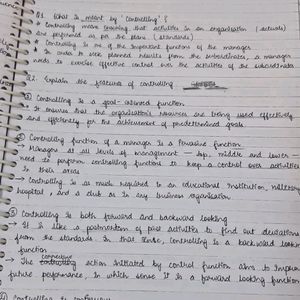 Q1. What is meant by Controlling?
* Controlling means ensuring that activities in an organisation (actuals)
are performed as per the plans (standards)
* Controlling is one of the important functions of the manager
* In order to seek planned results from the subordinates, a manager
needs to exercise effective control over the activities of the subordinates
Q2. Explain the features of controlling
① Controlling is a goal-oriented function
→ It ensures that the organisation's resources are being used effectively
and efficiently for the achievement of predetermined goals.
② Controlling function of a manager is a Pervasive function
→ Managers at all levels of management - top, middle and lower -
need to perform controlling functions to keep a control over activities
in their areas
→ Controlling is as much required in an educational institution, military
hospital, and a club as in any business organisation.
③ Controlling is both forward and backward looking
→ It is like a postmortem of past activities to find out deviations
from the standards. In that sense, controlling is a backward looking
function
→ The corrective action initiated by control function aims to improve
future performance, in which sense it is a forward looking function
④ Controlling is continuous